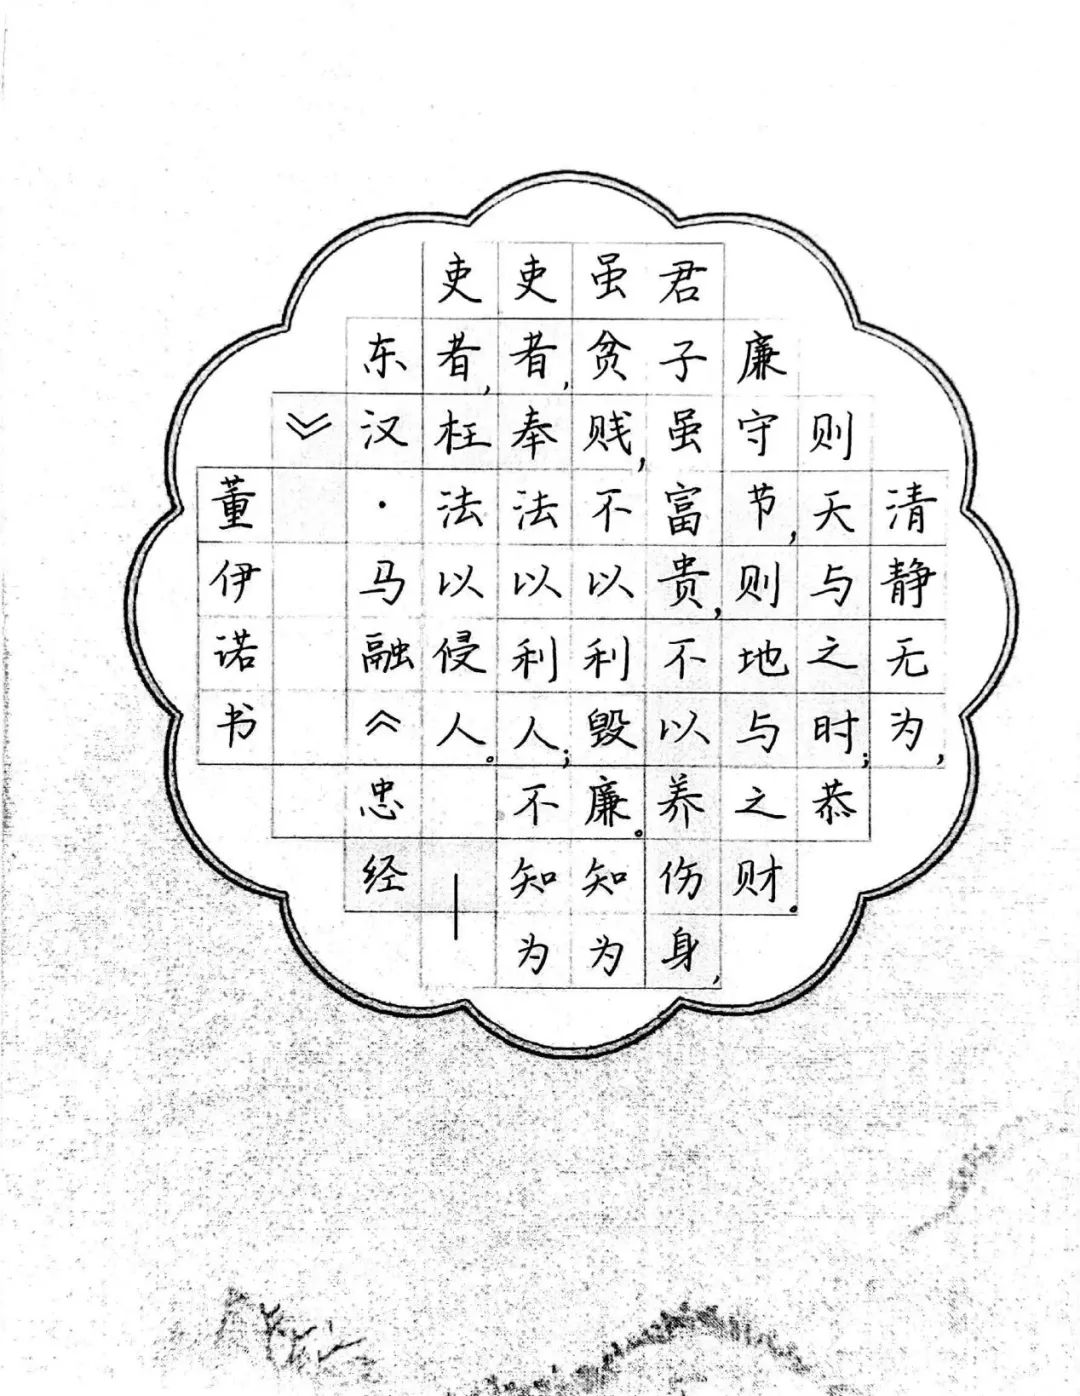 清静无为，
则天与之时；恭
廉守节，则地与之财。
君子虽富贵，不以养伤身，
虽贫贱，不以利毁廉。知为
吏者，奉法以利人；不知为
吏者，枉法以侵人。—
东汉·马融《忠经
》
董伊诺书